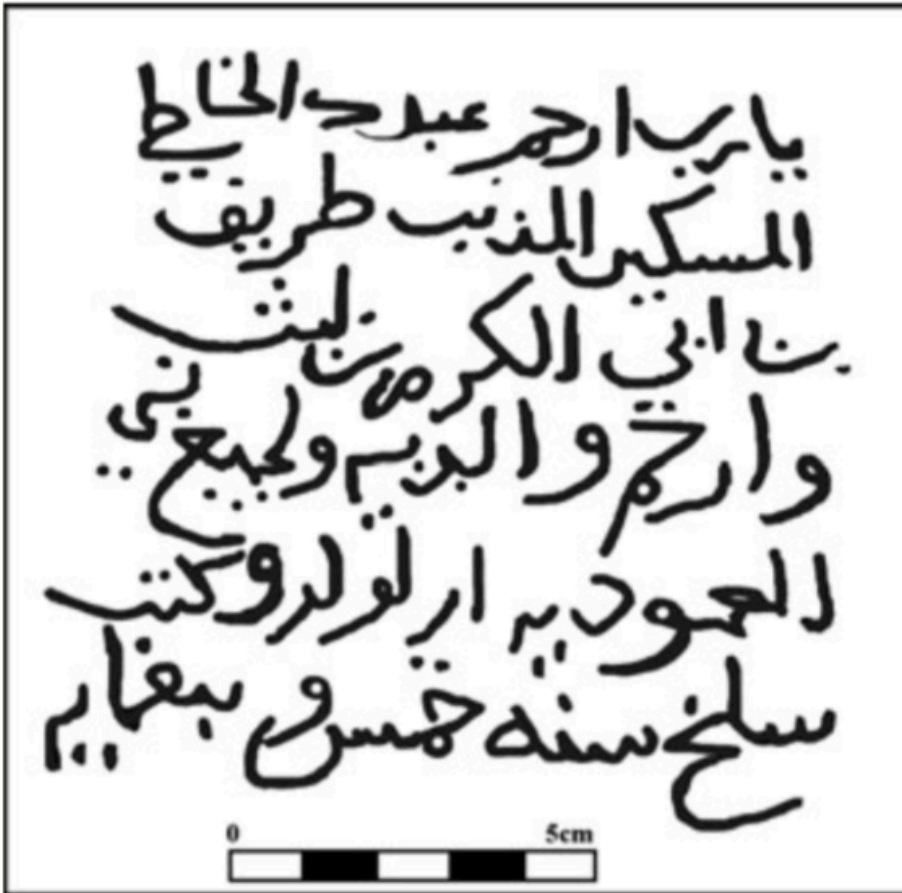 يا رب ارحم عبدك الخاطي
المسكين المذنب طريف
بن ابي الكرم بن ليث
وارحم والديه ولجميع بني
المعموديه وكتب
سلخ سنه خمس وسبعمايه
0 5cm